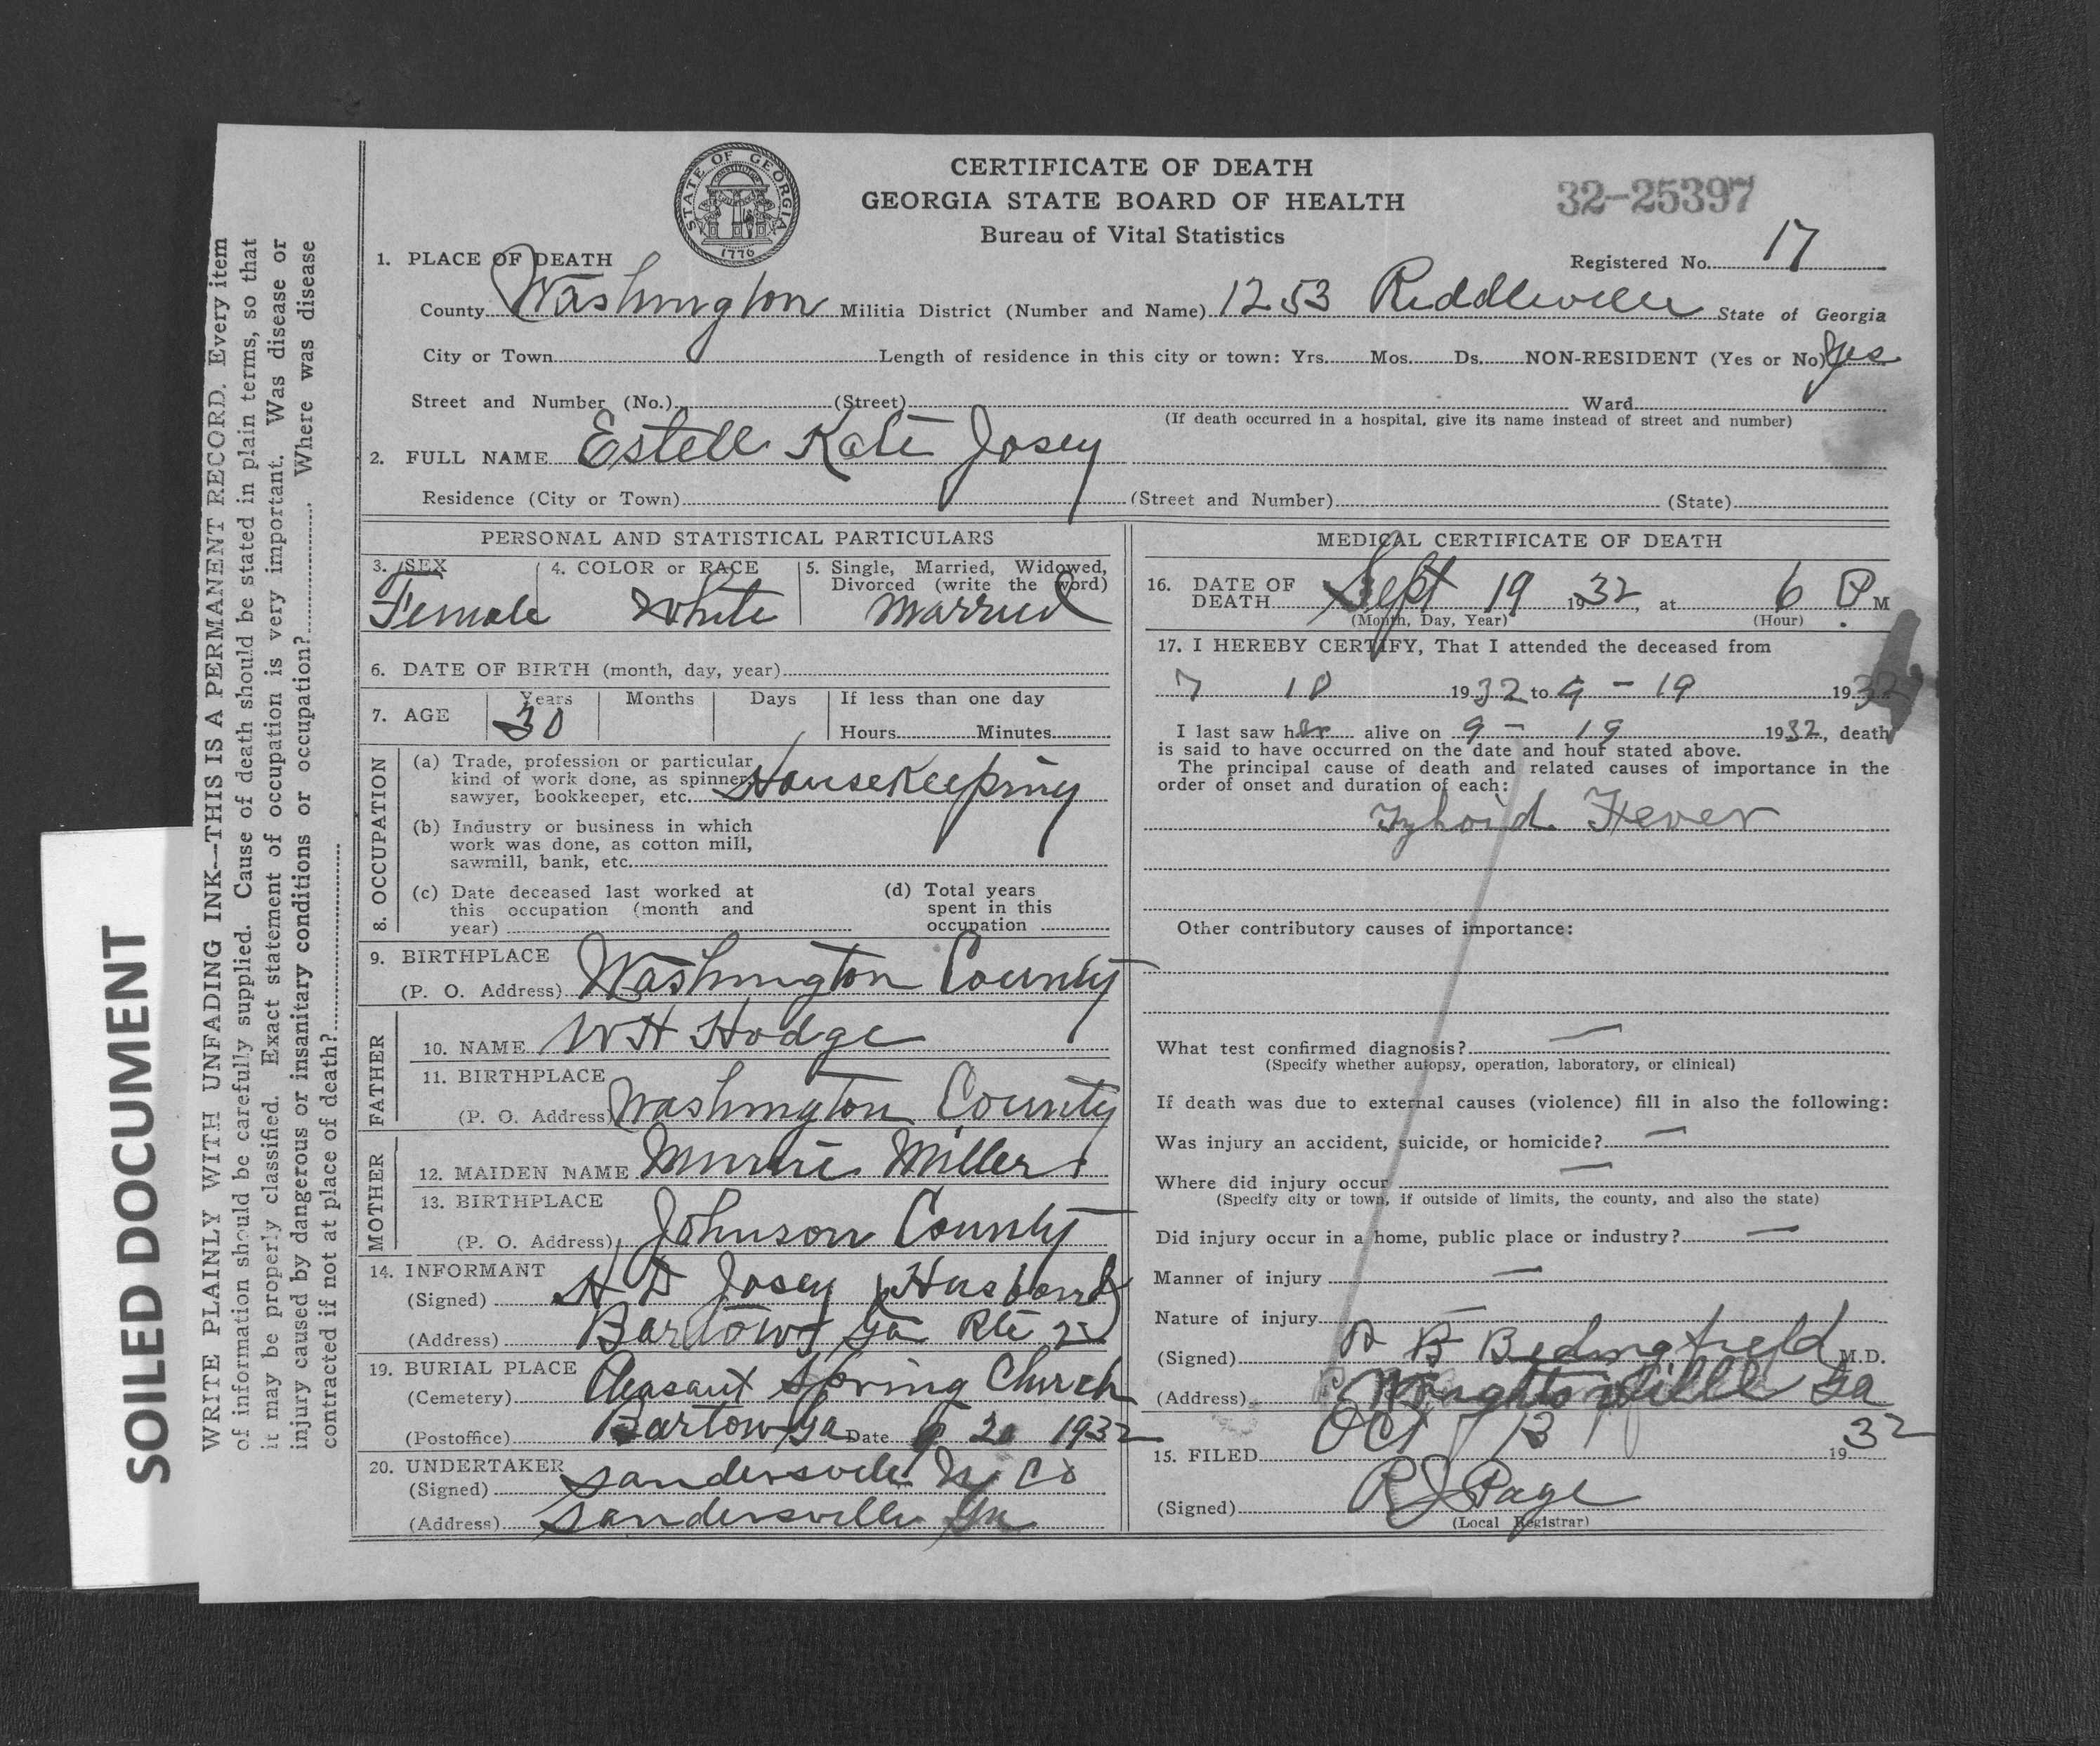 SOILED DOCUMENT
WRITE PLAINLY WITH UNFADING INK—THIS IS A PERMANENT RECORD. Every item
of information should be carefully supplied. Cause of death should be stated in plain terms, so that
it may be properly classified. Exact statement of occupation is very important. Was disease or
injury caused by dangerous or insanitary conditions or occupation? Where was disease
contracted if not at place of death?
STATE OF GEORGIA
CONSTITUTION
1776
CERTIFICATE OF DEATH
GEORGIA STATE BOARD OF HEALTH
Bureau of Vital Statistics
32-25397
Registered No. 17
1. PLACE OF DEATH
County Washington Militia District (Number and Name) 1253 Riddleville State of Georgia
City or Town Length of residence in this city or town: Yrs. Mos. Ds. NON-RESIDENT (Yes or No) Yes
Street and Number (No.) (Street) Ward
(If death occurred in a hospital, give its name instead of street and number)
2. FULL NAME Estell Kate Josey
Residence (City or Town) (Street and Number) (State)
PERSONAL AND STATISTICAL PARTICULARS
3. SEX 4. COLOR or RACE 5. Single, Married, Widowed,
Divorced (write the word)
Female White Married
6. DATE OF BIRTH (month, day, year)
7. AGE Years Months Days If less than one day
30 Hours Minutes
8. OCCUPATION
(a) Trade, profession or particular
kind of work done, as spinner,
sawyer, bookkeeper, etc. HouseKeeping
(b) Industry or business in which
work was done, as cotton mill,
sawmill, bank, etc.
(c) Date deceased last worked at
this occupation (month and
year)
(d) Total years
spent in this
occupation
9. BIRTHPLACE
(P. O. Address) Washington County
FATHER
10. NAME W H Hodge
11. BIRTHPLACE
(P. O. Address) Washington County
MOTHER
12. MAIDEN NAME Miller
13. BIRTHPLACE
(P. O. Address) Johnson County
14. INFORMANT
(Signed) H D Josey (Husband)
(Address) Bartow Ga Rte 2
19. BURIAL PLACE
(Cemetery) Pleasant Spring Church
(Postoffice) Bartow Ga Date 9 20 1932
20. UNDERTAKER
(Signed) Sandersville Co
(Address) Sandersville Ga
MEDICAL CERTIFICATE OF DEATH
16. DATE OF
DEATH Sept 19 1932, at 6 P. M
(Month, Day, Year) (Hour)
17. I HEREBY CERTIFY, That I attended the deceased from
7 18 1932 to 9 - 19 1932
I last saw her alive on 9 - 19 1932, death
is said to have occurred on the date and hour stated above.
The principal cause of death and related causes of importance in the
order of onset and duration of each:
Tyhoid Fever
Other contributory causes of importance:
What test confirmed diagnosis? —
(Specify whether autopsy, operation, laboratory, or clinical)
If death was due to external causes (violence) fill in also the following:
Was injury an accident, suicide, or homicide? —
Where did injury occur —
(Specify city or town, if outside of limits, the county, and also the state)
Did injury occur in a home, public place or industry? —
Manner of injury —
Nature of injury —
(Signed) R B Bedingfield M.D.
(Address) Wrightsville Ga
15. FILED Oct 13 1932
(Signed) R J Page
(Local Registrar)